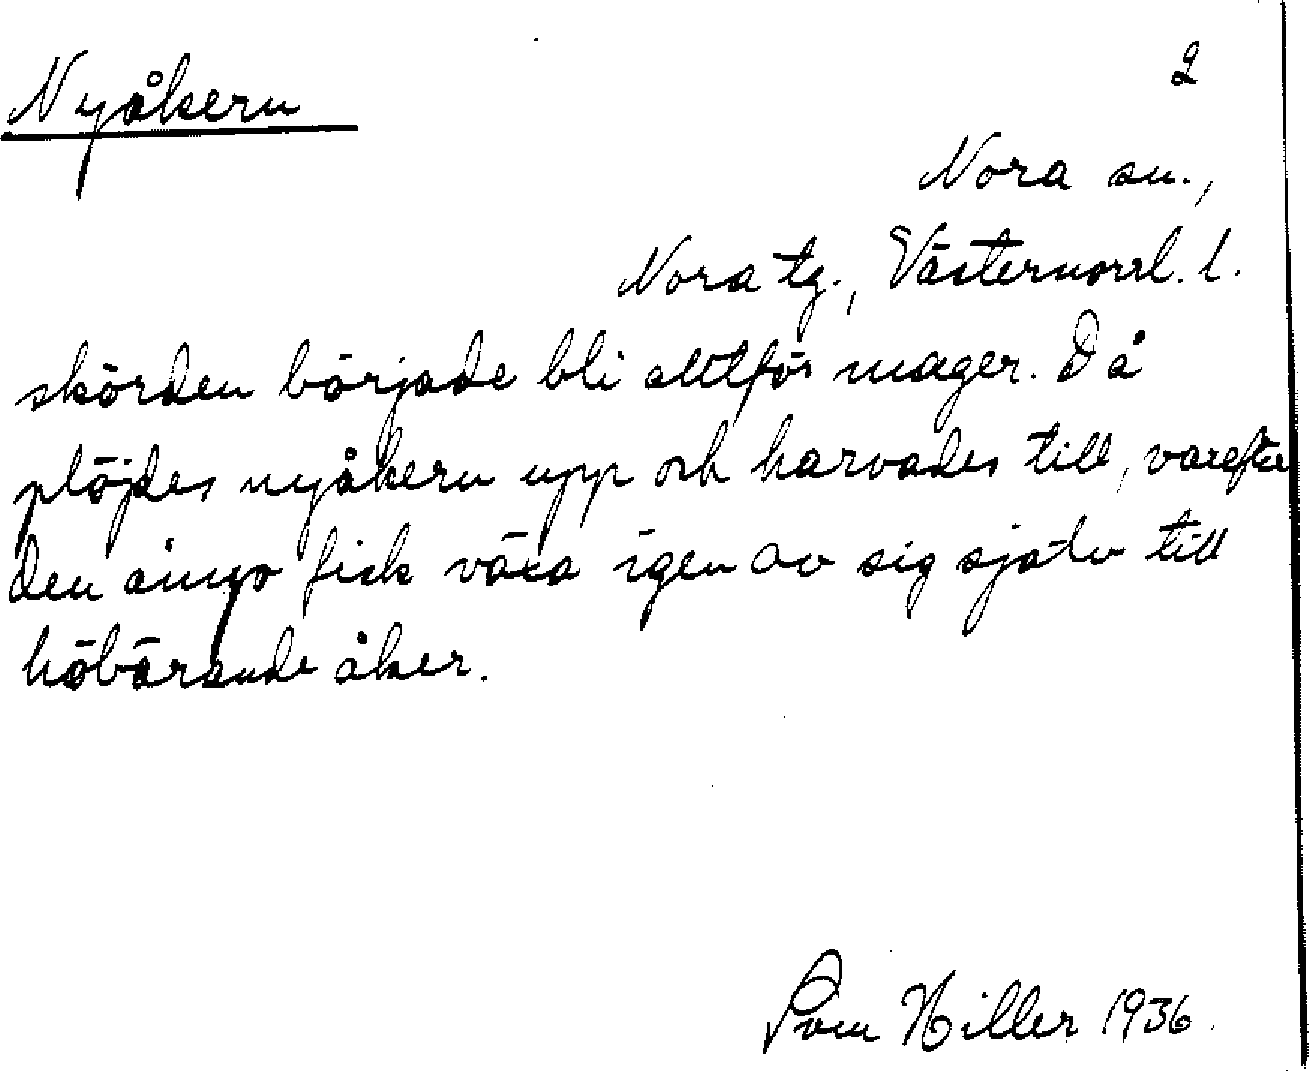 Nyåkern
2
Nora sn.,
Nora tg., Västernorrl. l.
skörden började bli alltför mager. Då
plöjdes nyåkern upp och harvades till, varefter
den ånyo fick växa igen av sig själv till
höbärande åker.
Hiller 1936.